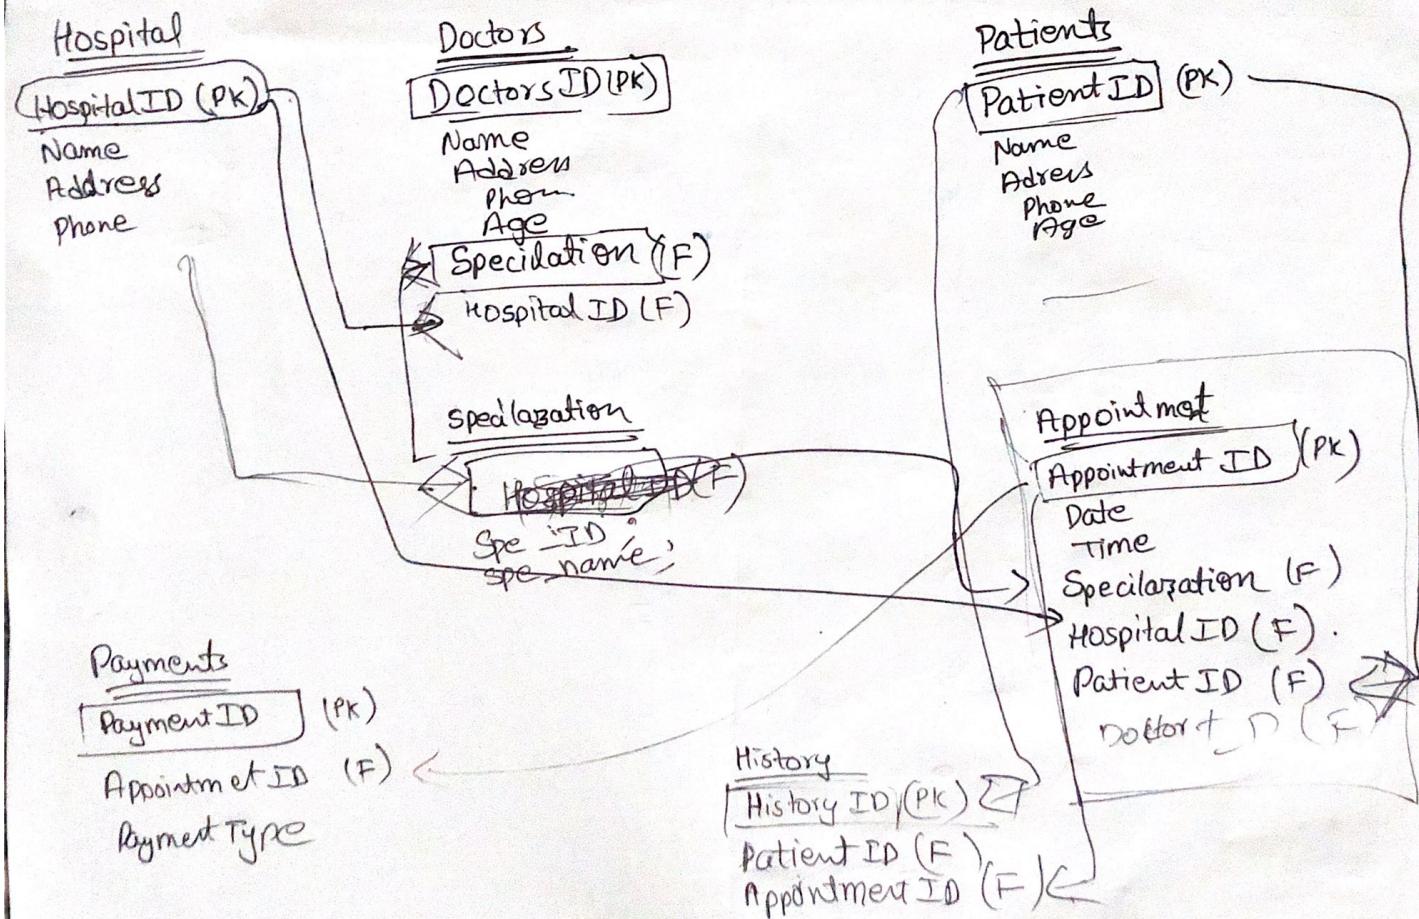 Hospital
Hospital ID (PK)
Name
Address
Phone
Doctors
Doctors ID (PK)
Name
Address
Phon
Age
Specilation (F)
Hospital ID (F)
Specilazation
Hospital ID (F)
Spe ID
spe_name
Patients
Patient ID (PK)
Name
Adress
Phone
Age
Appointmet
Appointment ID (PK)
Date
Time
Specilazation (F)
Hospital ID (F)
Patient ID (F)
(F)
Payments
Payment ID (PK)
Appointmet ID (F)
Payment Type
History
History ID (PK)
Patient ID (F)
Appointment ID (F)